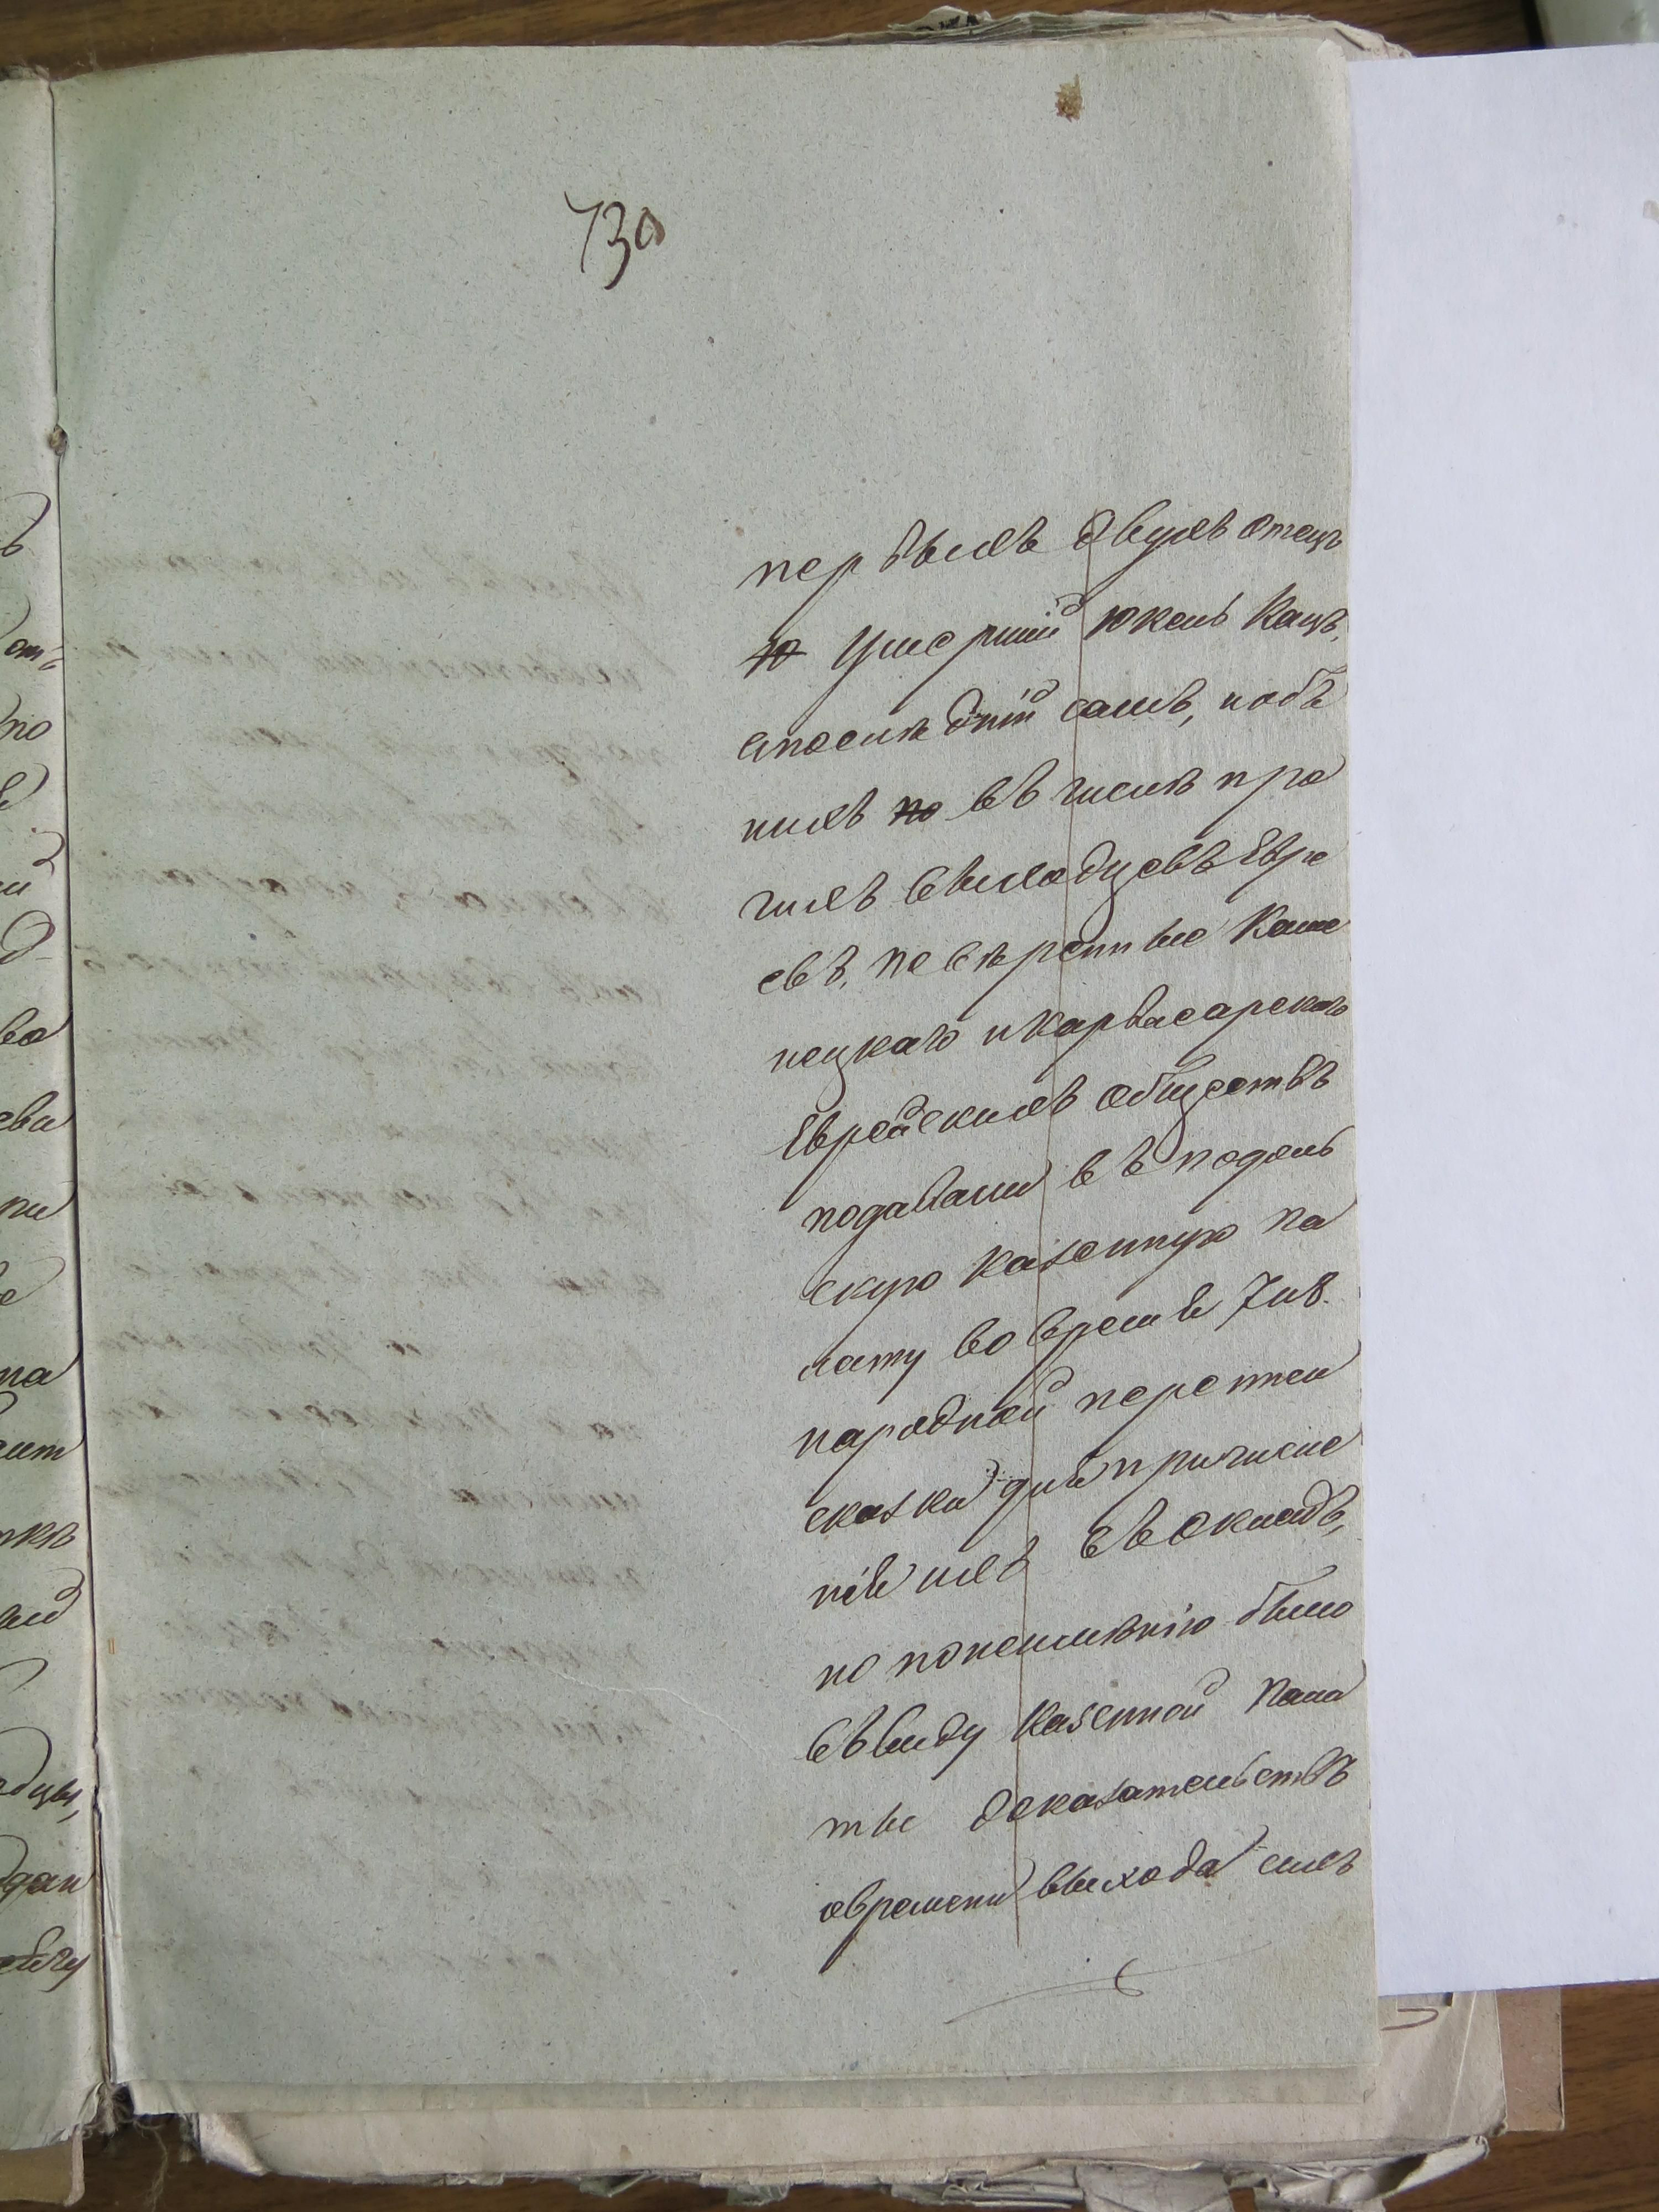 730
первыхъ двухъ отецъ
ю умершій Юкель Кацъ,
а последній самъ, и объ
нихъ по въ числѣ про
чихъ выходцевъ Евре
евъ, повѣренные Каме
нецкаго и Карвасарскаго
Еврейскихъ обществъ
подавали въ Подоль
скую Казенную Па
лату во время 7й в.
народной переписи
сказки для причисле
нія ихъ въ окладъ,
но понеимѣнію было
въ виду Казенной Пала
ты доказательствъ
овремени выхода сихъ